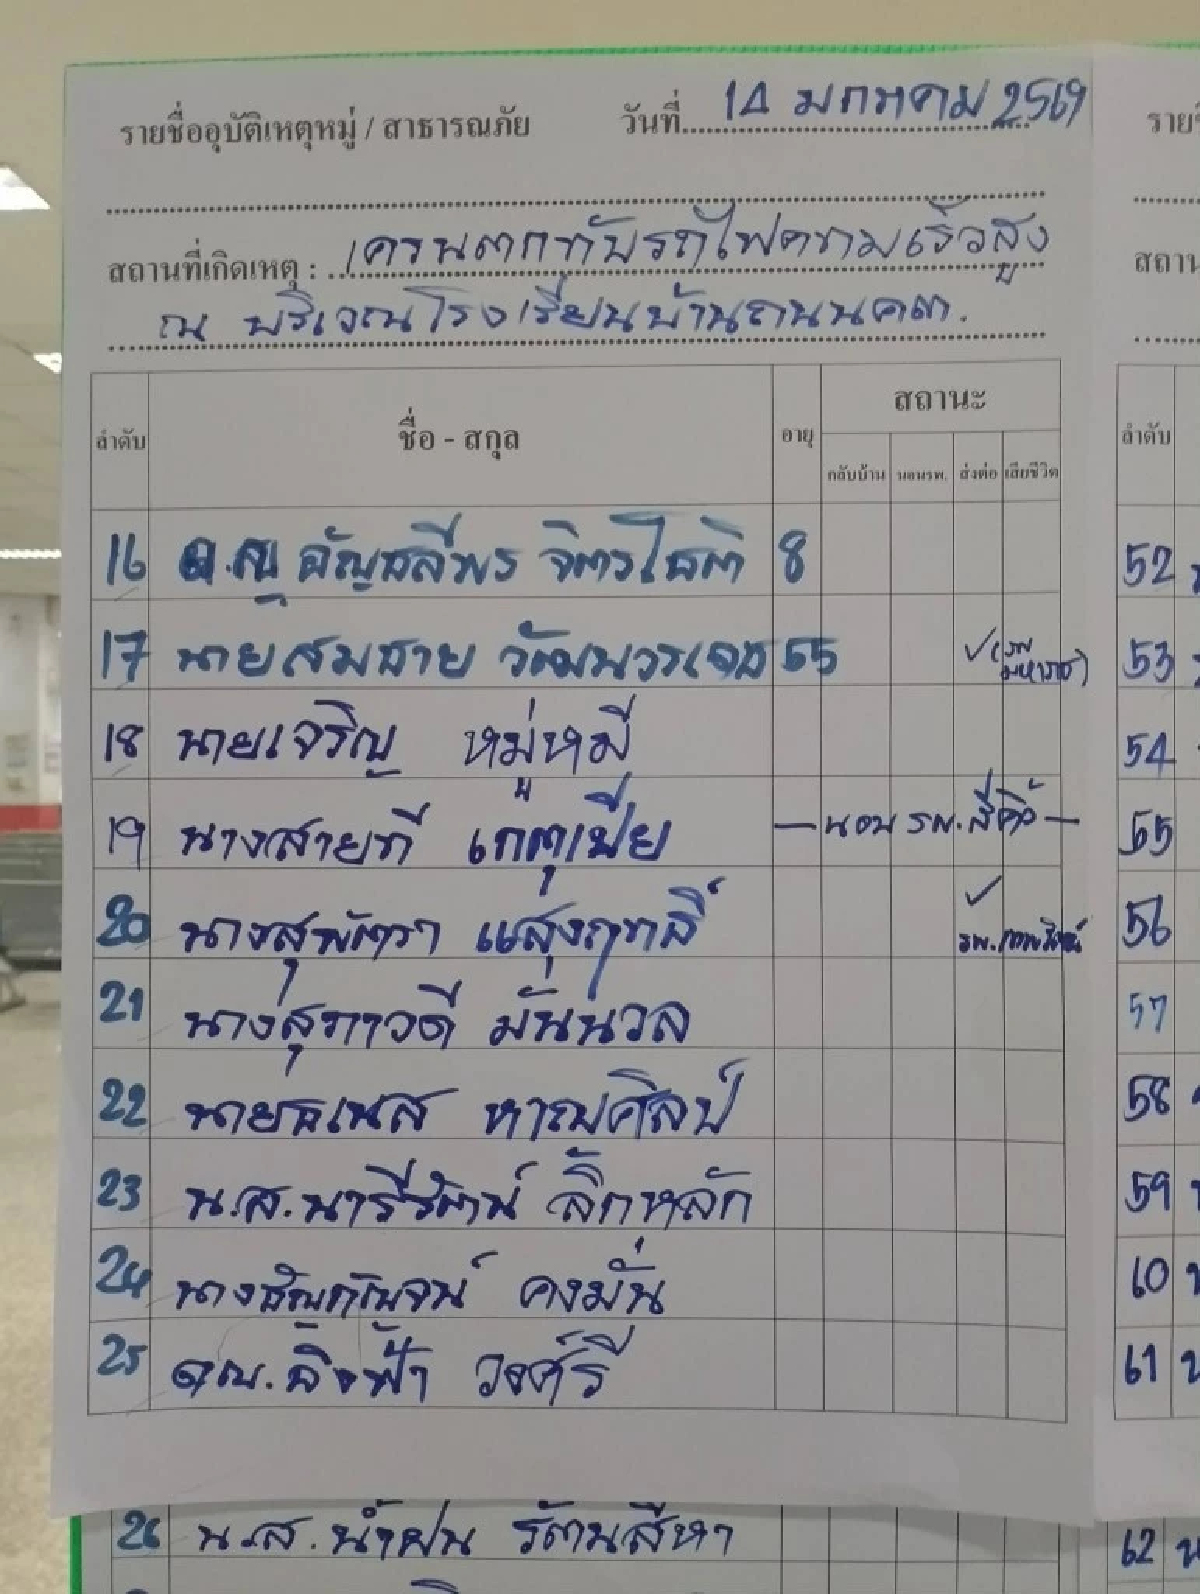 รายชื่ออุบัติเหตุหมู่ / สาธารณภัย วันที่ 14 มกราคม 2569
สถานที่เกิดเหตุ : เครนตกทับรถไฟความเร็วสูง
ณ บริเวณโรงเรียนบ้านถนนคต.
ลำดับ ชื่อ - สกุล อายุ สถานะ
กลับบ้าน นอนรพ. ส่งต่อ เสียชีวิต
16 ด.ญ อัญชลีพร จิตรโชติ 8
17 นายสมชาย 55 ✓ (รพ มหาราช)
18 นายเจริญ หมู่หมี
19 นางสายที เกตุเปีย — นอน รพ. สีคิ้ว —
20 นางสุพัตรา แสุงฤทธิ์ ✓ รพ.
21 นางสุภาวดี มั่นนวล
22 นายธเนส หาญศิลป์
23 น.ส. นารีรัตน์ ลิ้กหลัก
24 คงมั่น
25 ด.ญ. อิงฟ้า วงศ์รี
26 น.ส. น้ำฝน รัตนสีหา
รายชื่
สถาน
ลำดับ
52
53
54
55
56
57
58
59
60
61
62